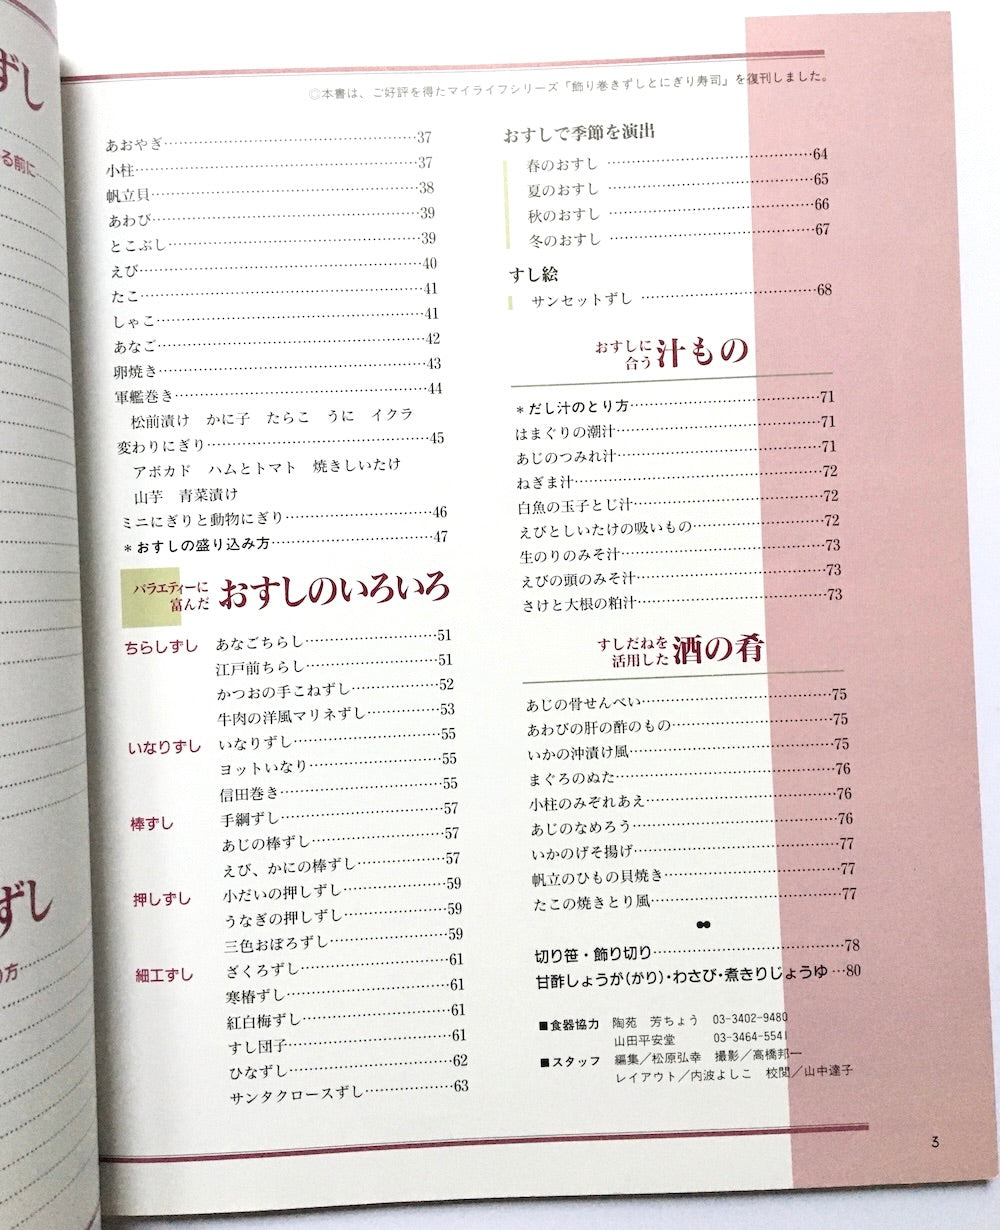 ずし
る前に
ずし
り方
◎本書は、ご好評を得たマイライフシリーズ『飾り巻きずしとにぎり寿司』を復刊しました。
あおやぎ……37
小柱……37
帆立貝……38
あわび……39
とこぶし……39
えび……40
たこ……41
しゃこ……41
あなご……42
卵焼き……43
軍艦巻き……44
松前漬け かに子 たらこ うに イクラ
変わりにぎり……45
アボカド ハムとトマト 焼きしいたけ
山芋 青菜漬け
ミニにぎりと動物にぎり……46
*おすしの盛り込み方……47
バラエティーに
富んだ
おすしのいろいろ
ちらしずし あなごちらし……51
江戸前ちらし……51
かつおの手こねずし……52
牛肉の洋風マリネずし……53
いなりずし いなりずし……55
ヨットいなり……55
信田巻き……55
棒ずし 手綱ずし……57
あじの棒ずし……57
えび、かにの棒ずし……57
押しずし 小だいの押しずし……59
うなぎの押しずし……59
三色おぼろずし……59
細工ずし ざくろずし……61
寒椿ずし……61
紅白梅ずし……61
すし団子……61
ひなずし……62
サンタクロースずし……63
おすしで季節を演出
春のおすし……64
夏のおすし……65
秋のおすし……66
冬のおすし……67
すし絵
サンセットずし……68
おすしに
合う
汁もの
*だし汁のとり方……71
はまぐりの潮汁……71
あじのつみれ汁……71
ねぎま汁……72
白魚の玉子とじ汁……72
えびとしいたけの吸いもの……72
生のりのみそ汁……73
えびの頭のみそ汁……73
さけと大根の粕汁……73
すしだねを
活用した
酒の肴
あじの骨せんべい……75
あわびの肝の酢のもの……75
いかの沖漬け風……75
まぐろのぬた……76
小柱のみぞれあえ……76
あじのなめろう……76
いかのげそ揚げ……77
帆立のひもの貝焼き……77
たこの焼きとり風……77
切り笹・飾り切り……78
甘酢しょうが(がり)・わさび・煮きりじょうゆ…80
■食器協力 陶苑 芳ちょう 03-3402-9480
山田平安堂 03-3464-5541
■スタッフ 編集/松原弘幸 撮影/高橋邦一
レイアウト/内波よしこ 校閲/山中達子
3